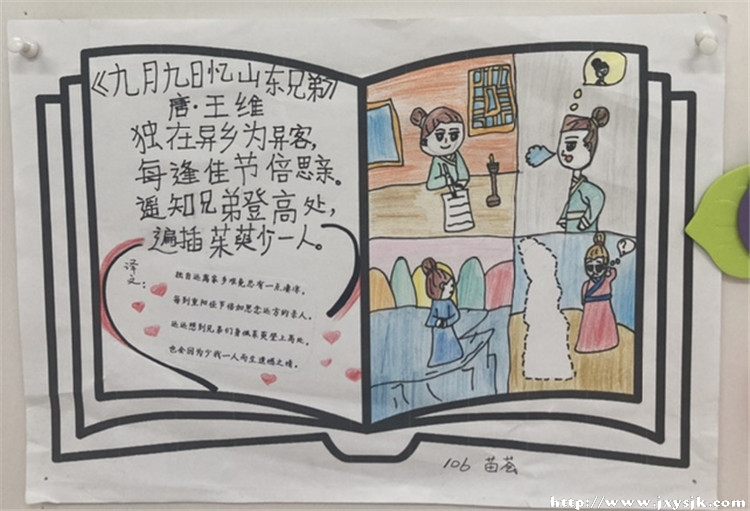 《九月九日忆山东兄弟》
唐·王维
独在异乡为异客，
每逢佳节倍思亲。
遥知兄弟登高处，
遍插茱萸少一人。
译文：
独自远离家乡难免总有一点凄凉，
每到重阳佳节倍加思念远方的亲人。
远远想到兄弟们身佩茱萸登上高处，
也会因为少我一人而生遗憾之情。
?
106 苗荟
http://www.jxysjk.com